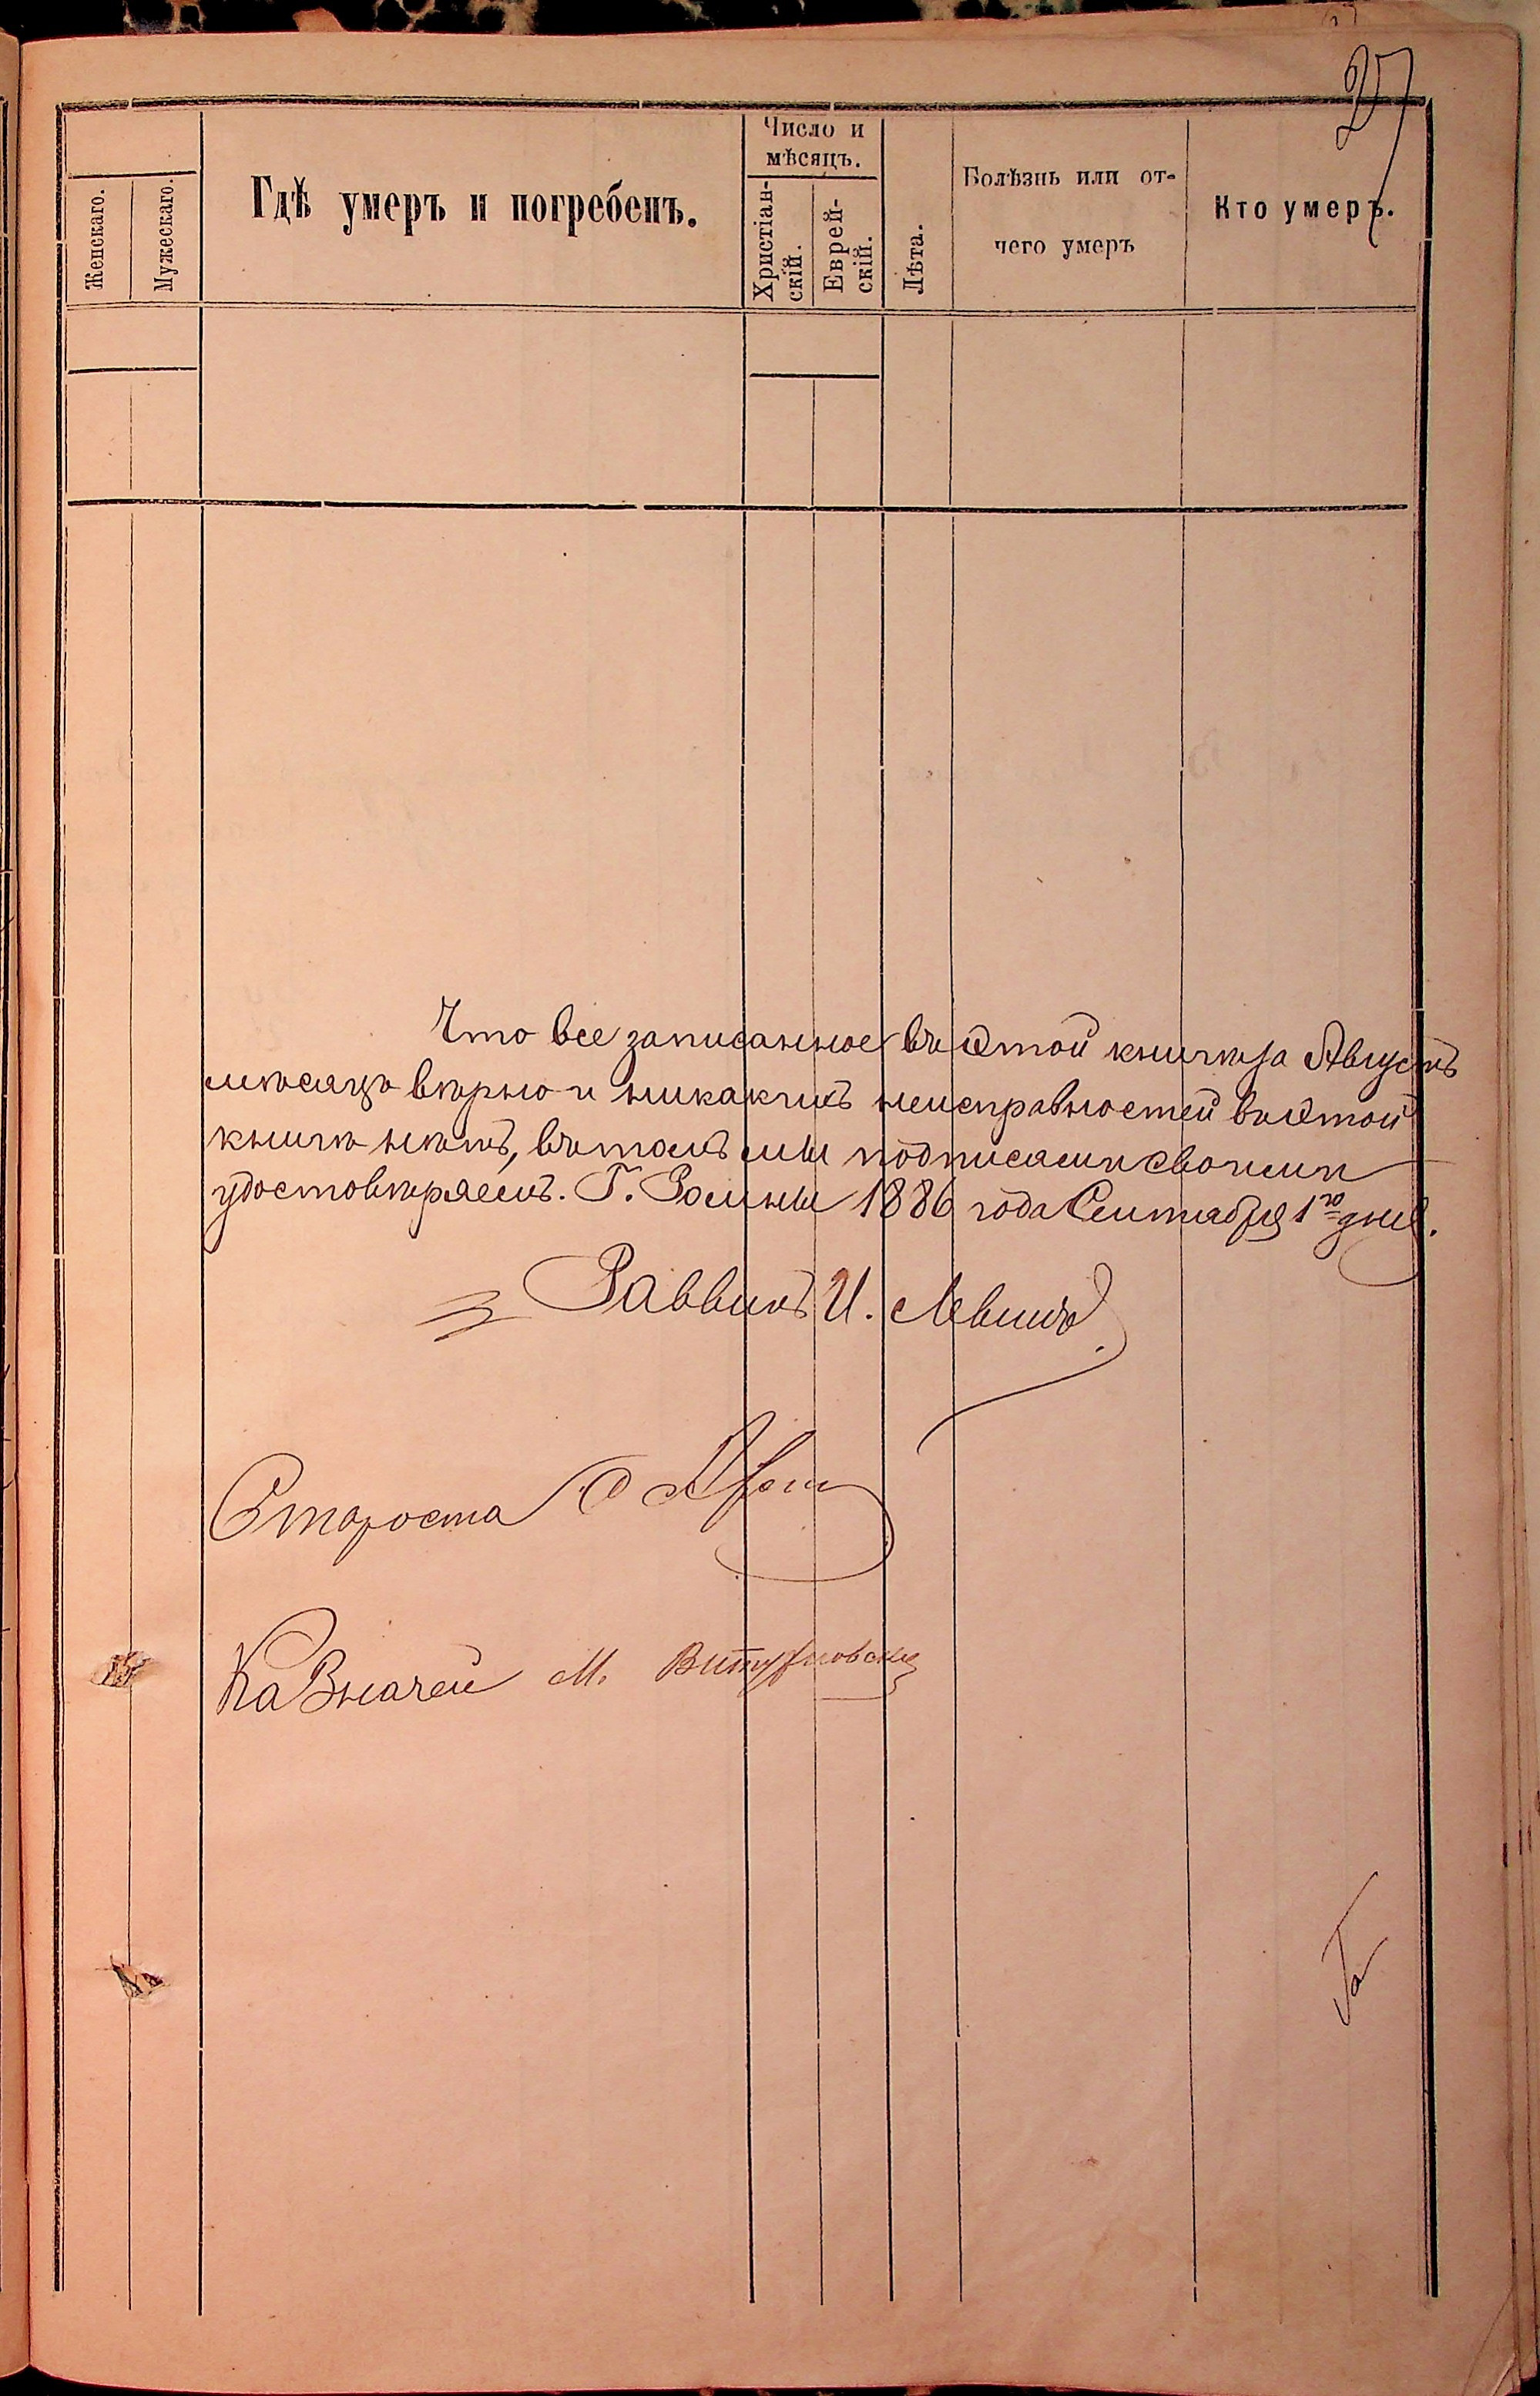 27
Женскаго.
Мужескаго.
Гдѣ умеръ и погребенъ.
Число и
мѣсяцъ.
Христіан-
скій.
Еврей-
скій.
Лѣта.
Болѣзнь или от-
чего умеръ
Кто умеръ.
Что все записанное въ этой книгѣ за Августъ
мѣсяцъ вѣрно и никакихъ неисправностей въ этой
книгѣ нѣтъ, въ томъ мы подписами своими
удостовѣряемъ. Г. Ромны 1886 года Сентября 1го дня.
Раввинъ И. Левинъ
Староста
Казначей М.